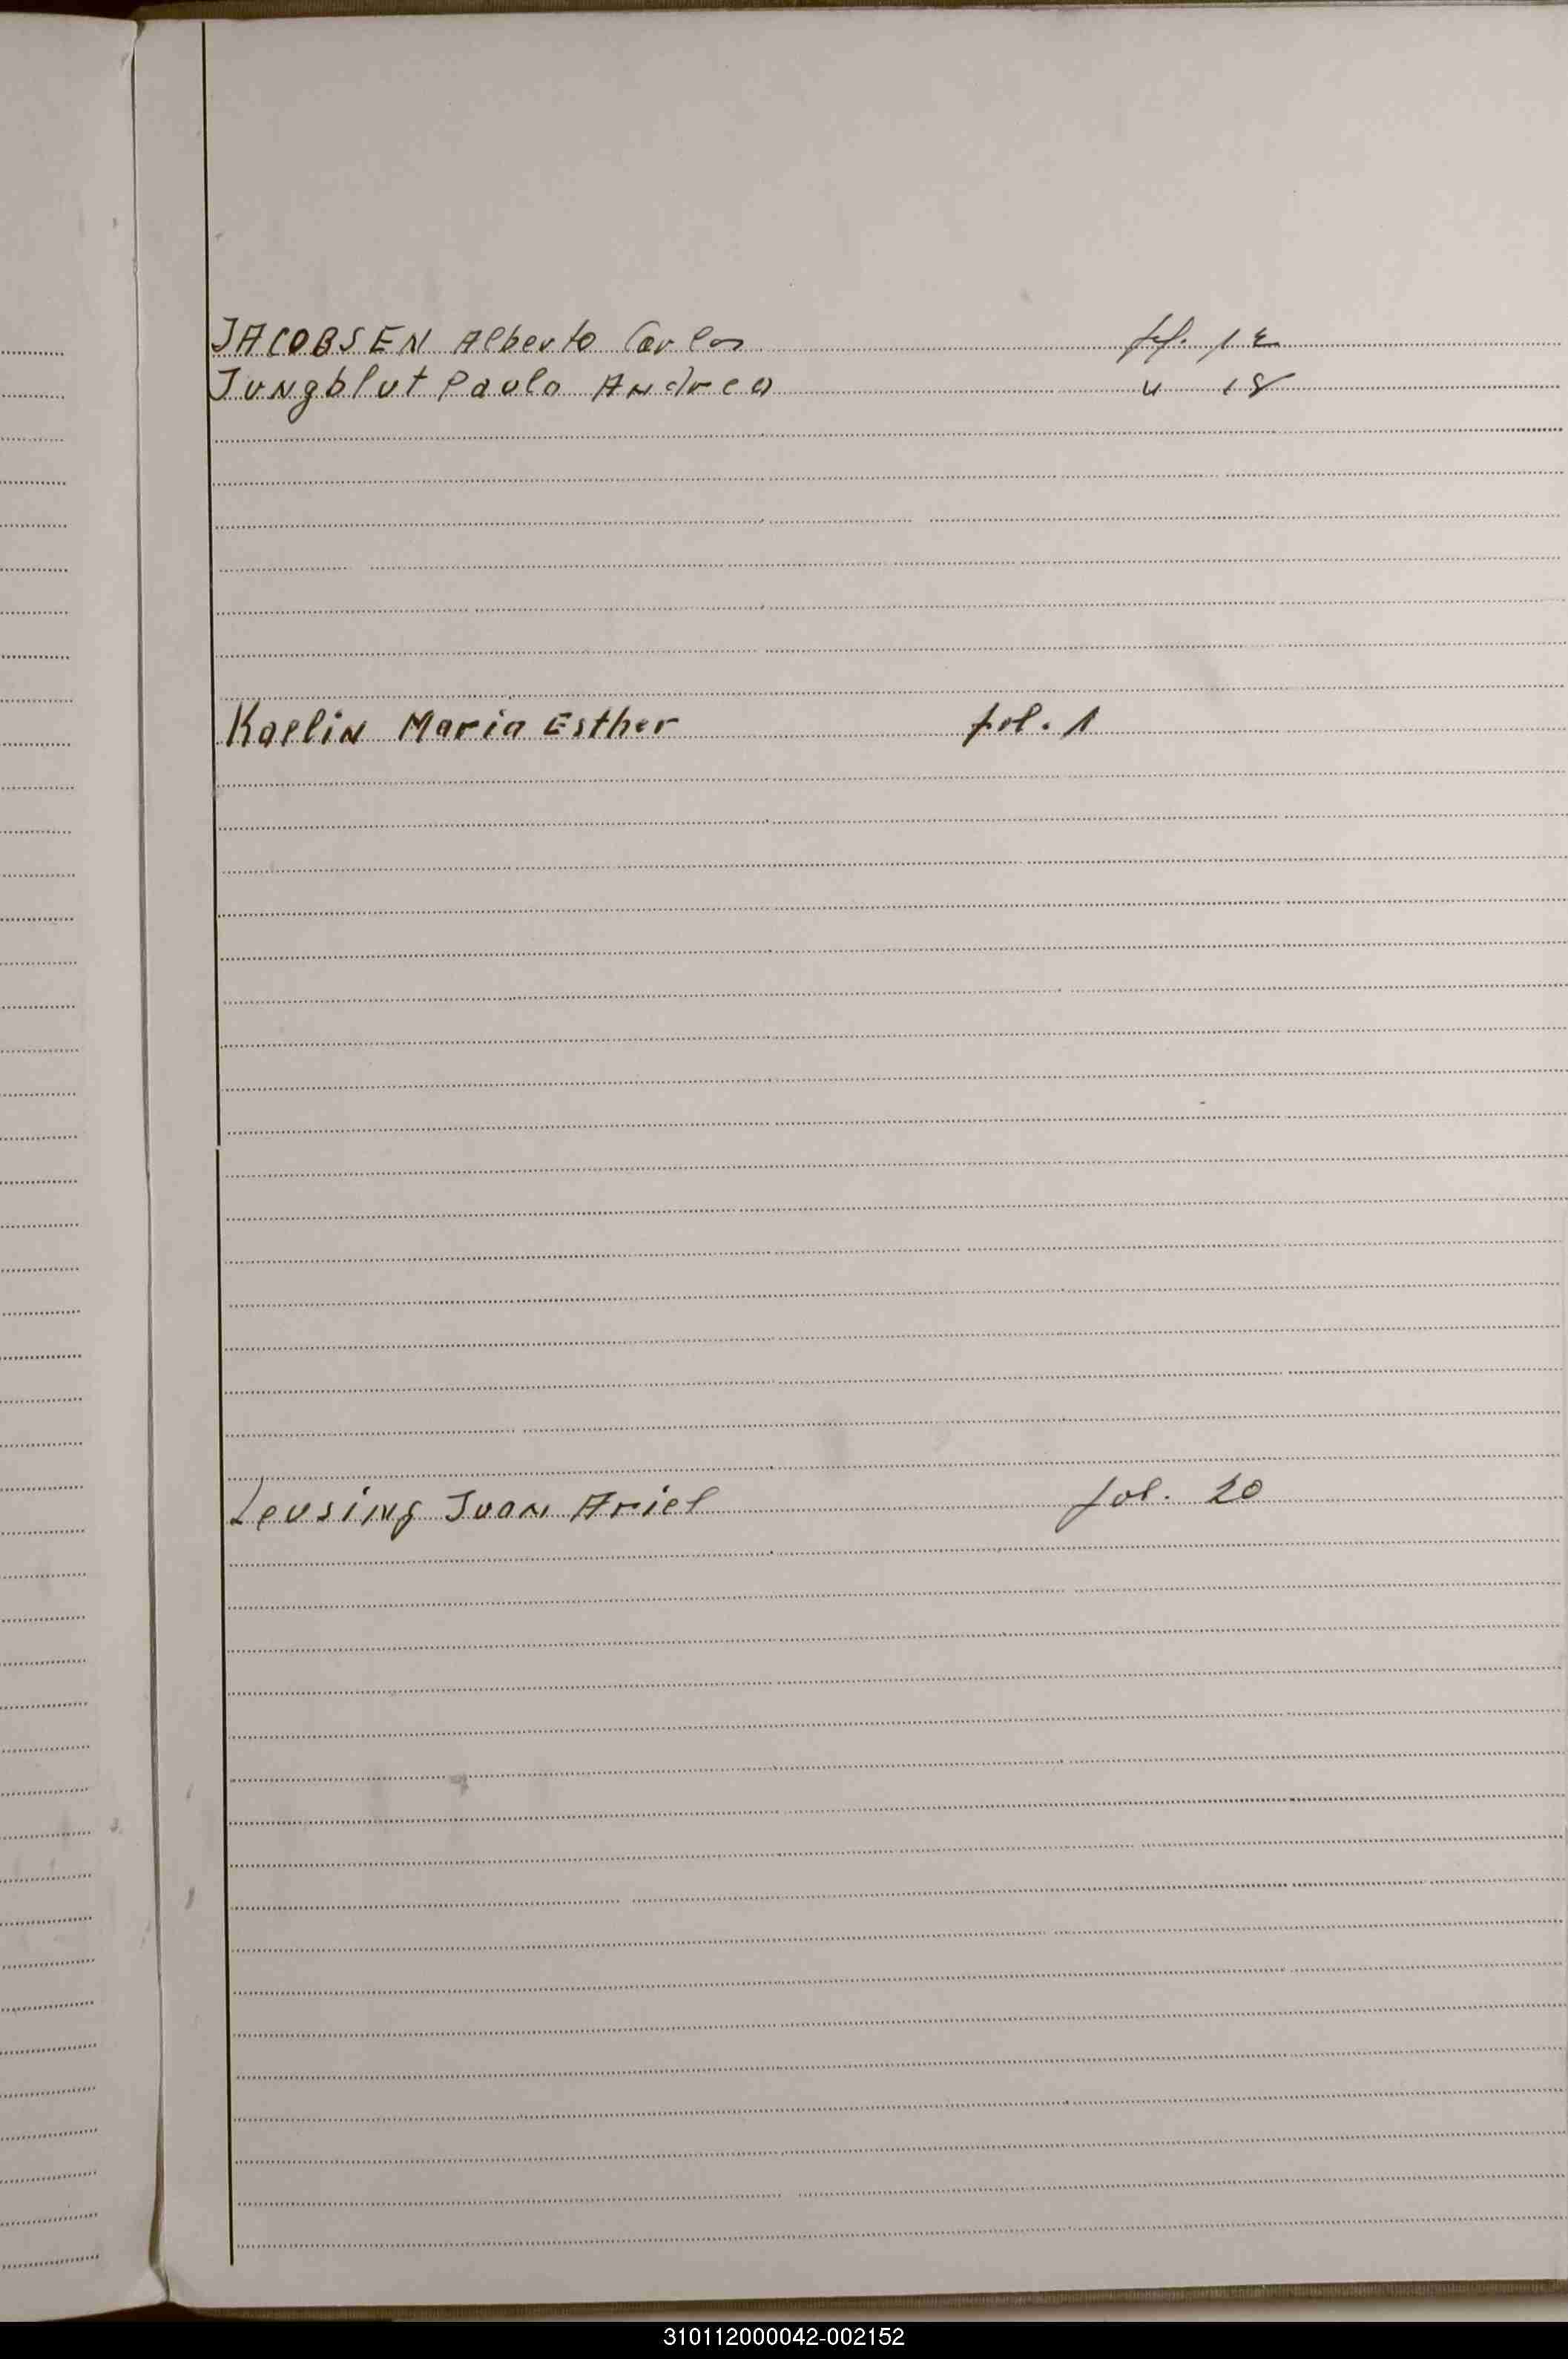 JACOBSEN Alberto Carlos fol. 12
Jungblut Paulo Andrea " 18
Kaelin Maria Esther fol. 1
Leusing Juan Ariel fol. 20
310112000042-002152